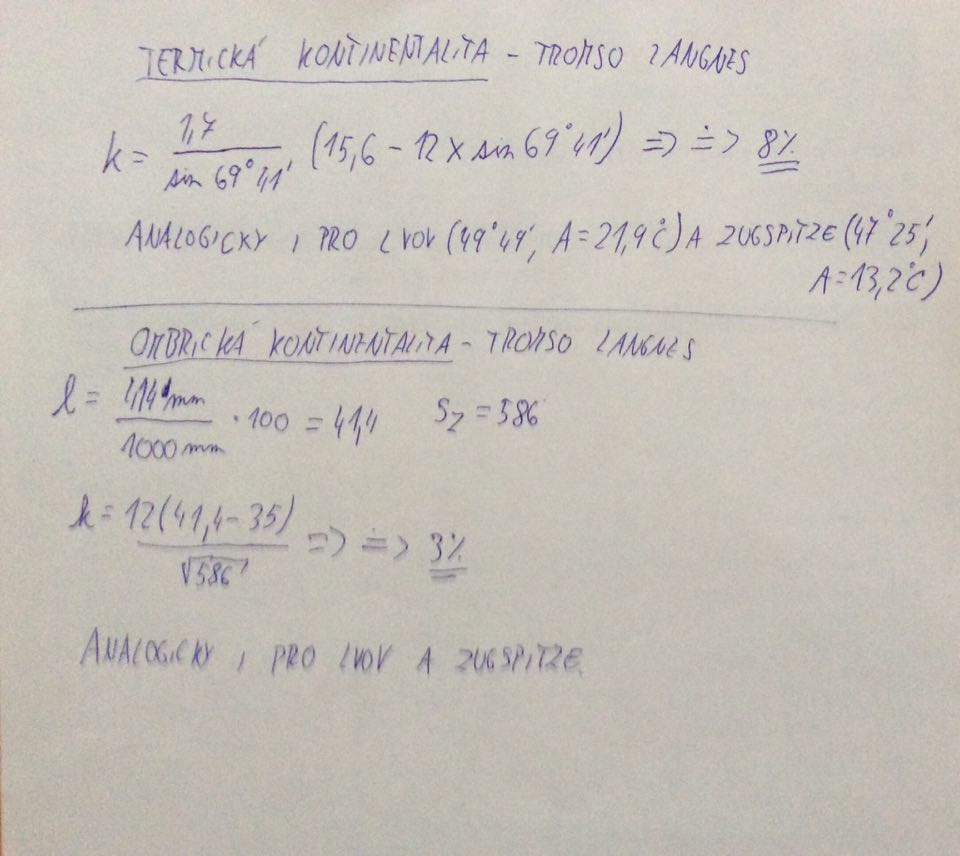 TERMICKÁ KONTINENTALITA - TROMSO LANGNES
k = 1,7 / sin 69°41' (15,6 - 12 x sin 69°41') => ≐> 8%
ANALOGICKY I PRO LVOV (49°49', A=21,9°C) A ZUGSPITZE (47°25',
A=13,2°C)
OMBRICKÁ KONTINENTALITA - TROMSO LANGNES
l = 414 mm / 1000 mm · 100 = 41,4 Sz = 586
k = 12(41,4-35) / √586 => ≐> 3%
ANALOGICKY I PRO LVOV A ZUGSPITZE.